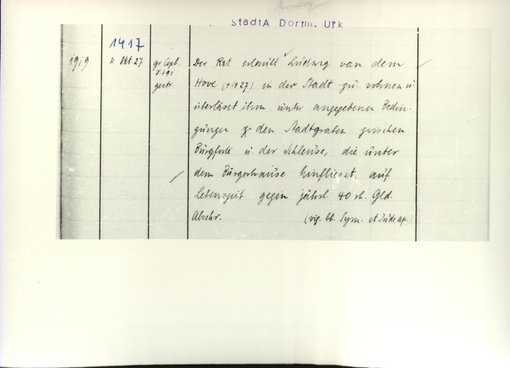 StadtA Dortm. Urk
1417
1919 " Okt 27 gr. Copb. Der Rat erlaubt Ludwig van dem
S. 191 Hove (1427) in der Stadt zu wohnen u.
gestr. überlässt ihm unter angegebenen Bedin-
gungen den Stadtgraben zwischen
Burgforte u. der Schleuse, die unter
dem Bürgerhause hinfliesst, auf
Lebenszeit gegen jährl. 40 rh. Gld.
Abschr. (vig. bt. Sym. et Jude ap.